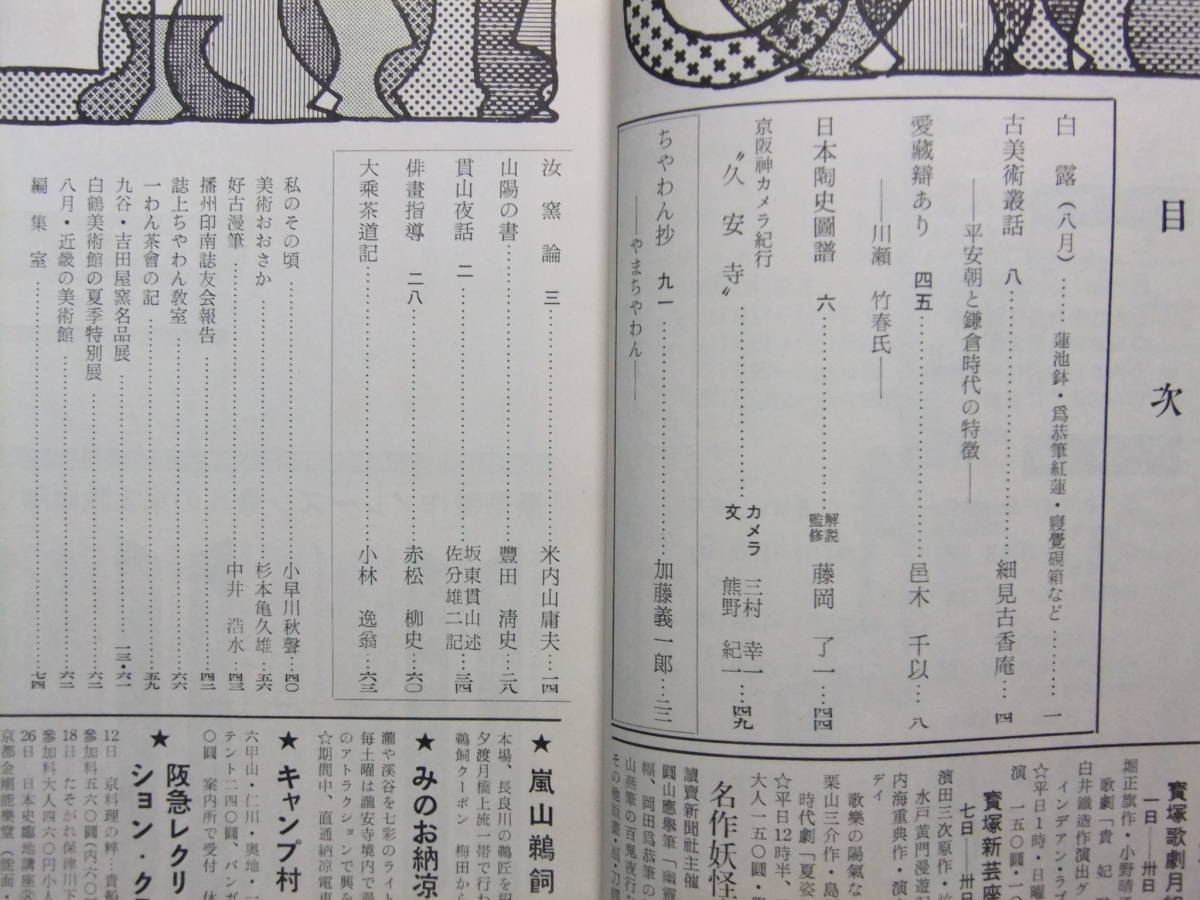 目次
白露（八月）……蓮池鉢・爲恭筆紅蓮・寢覺硯箱など………一
古美術叢話　八………細見古香庵…四
――平安朝と鎌倉時代の特徴――
愛藏辯あり　四五………邑木　千以…八
――川瀬　竹春氏――
日本陶史圖譜　六………解説監修　藤岡　了一…四四
京阪神カメラ紀行
〝久安寺〟………カメラ　三村　幸一
文　熊野　紀一…四九
ちゃわん抄　九一………加藤義一郎…二二
――やまちゃわん――
汝窯論　三………米内山庸夫…一四
山陽の書………豐田　淸史…二八
貫山夜話　二………坂東貫山述
佐分雄二記…三四
俳畫指導　二八………赤松　柳史…六〇
大乘茶道記………小林　逸翁…六三
私のその頃………小早川秋聲…四〇
美術おおさか………杉本亀久雄…五六
好古漫筆………中井　浩水…四三
播州印南誌友会報告………四二
誌上ちゃわん教室………六六
一わん茶會の記………五九
九谷・吉田屋窯名品展………一三・六一
白鶴美術館の夏季特別展………六二
八月・近畿の美術館………六二
編集室………七四
寳塚歌劇月組
一日―卅日
堀正旗作・小野晴
歌劇「貴　妃
白井鐵造作演出グ
インデアン・ラブ
☆平日1時・日曜
演　一五〇圓・一〇
寳塚新芸座
七日―卅日
濱田三次原作・竹
水戸黄門漫遊記
内海重典作・演
ディ
歌樂の陽氣な
栗山三介作・島
時代劇「夏姿
☆平日12時半、
大人一五〇圓・
名作妖怪
讀賣新聞社主催
圓山應擧筆「幽靈
幅、岡田爲恭筆の
山燕筆の百鬼夜行な
★嵐山鵜飼
本場、長良川の鵜匠を招
夕渡月橋上流一帯で行わ
鵜飼クーポン　梅田から
★みのお納凉
瀧や溪谷を七彩のライト
毎土曜は瀧安寺境内で漫
のアトラクションで興を
☆期間中、直通納凉電車
★キャンプ村
六甲山・仁川・奥地・
テント二四〇圓、バンガ
〇圓　案内所で受付　休
★阪急レクリ
ション・ク
12日　京料理の粹…貴船
參加料五六〇圓（內六〇
18日　たそがれ保津川下
參加料大人四六〇円小人
26日　日本史臨地講座⑧
京都金剛能樂堂（能面・